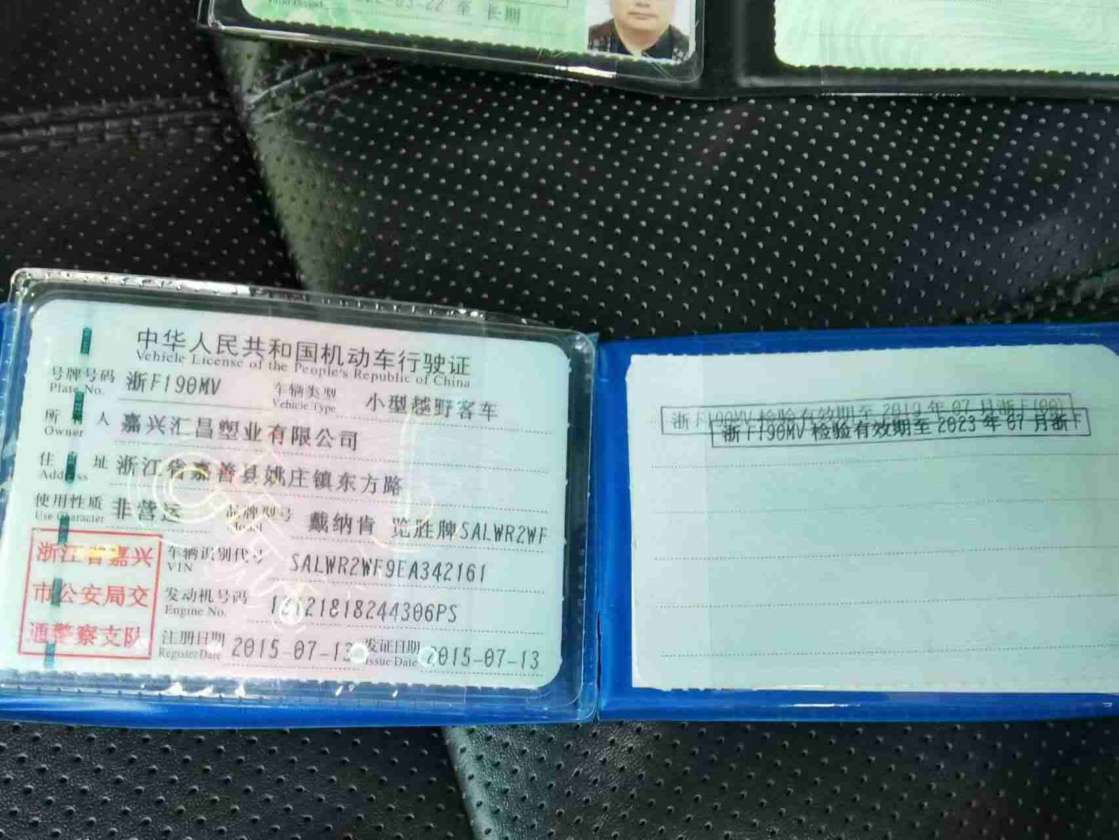 至 长期
中华人民共和国机动车行驶证
Vehicle License of the People's Republic of China
号牌号码 浙F190MV 车辆类型 小型越野客车
Plate No. Vehicle Type
所有人 嘉兴汇昌塑业有限公司
Owner
住址 浙江省嘉善县姚庄镇东方路
Address
使用性质 非营运 品牌型号 戴纳肯 览胜牌SALWR2WF
Use Character Model
浙江省嘉兴
市公安局交
通警察支队
车辆识别代号 SALWR2WF9EA342161
VIN
发动机号码 18244306PS
Engine No.
注册日期 2015-07-13 发证日期 2015-07-13
Register Date Issue Date
检验有效期至 2019 年 07 月浙F
浙F190MV 检验有效期至 2023 年 07 月浙F